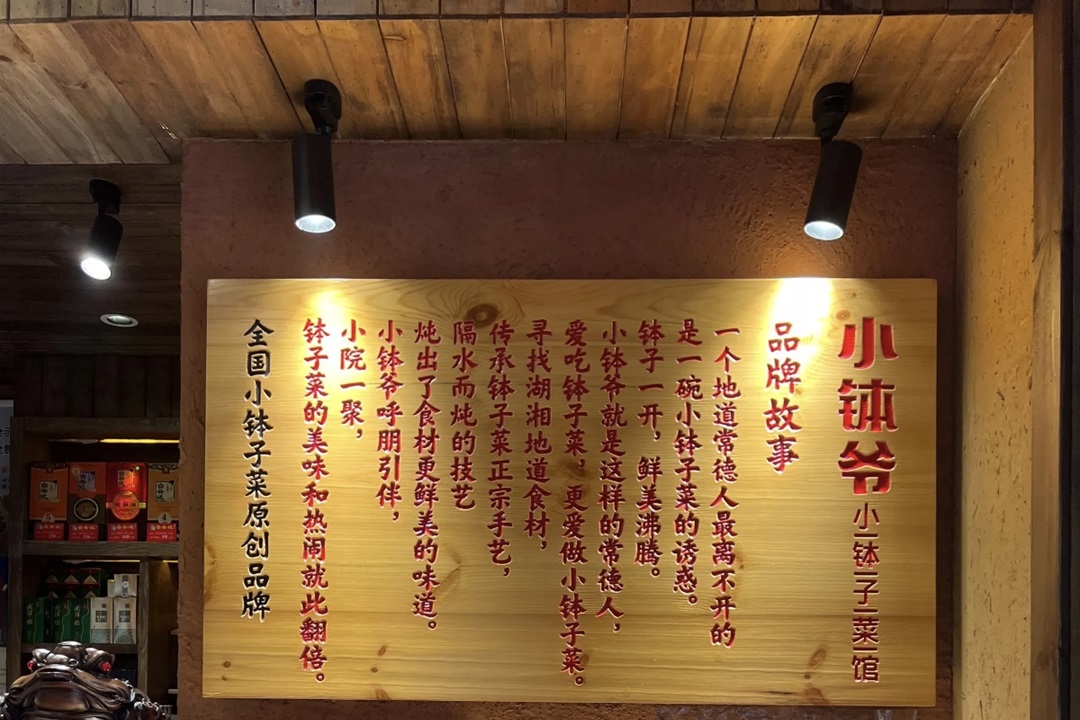 小钵爷
小钵子菜馆
品牌故事
一个地道常德人最离不开的
是一碗小钵子菜的诱惑。
钵子一开，鲜美沸腾。
小钵爷就是这样的常德人，
爱吃钵子菜，更爱做小钵子菜。
寻找湖湘地道食材，
传承钵子菜正宗手艺，
隔水而炖的技艺
炖出了食材更鲜美的味道。
小钵爷呼朋引伴，
小院一聚，
钵子菜的美味和热闹就此翻倍。
全国小钵子菜原创品牌